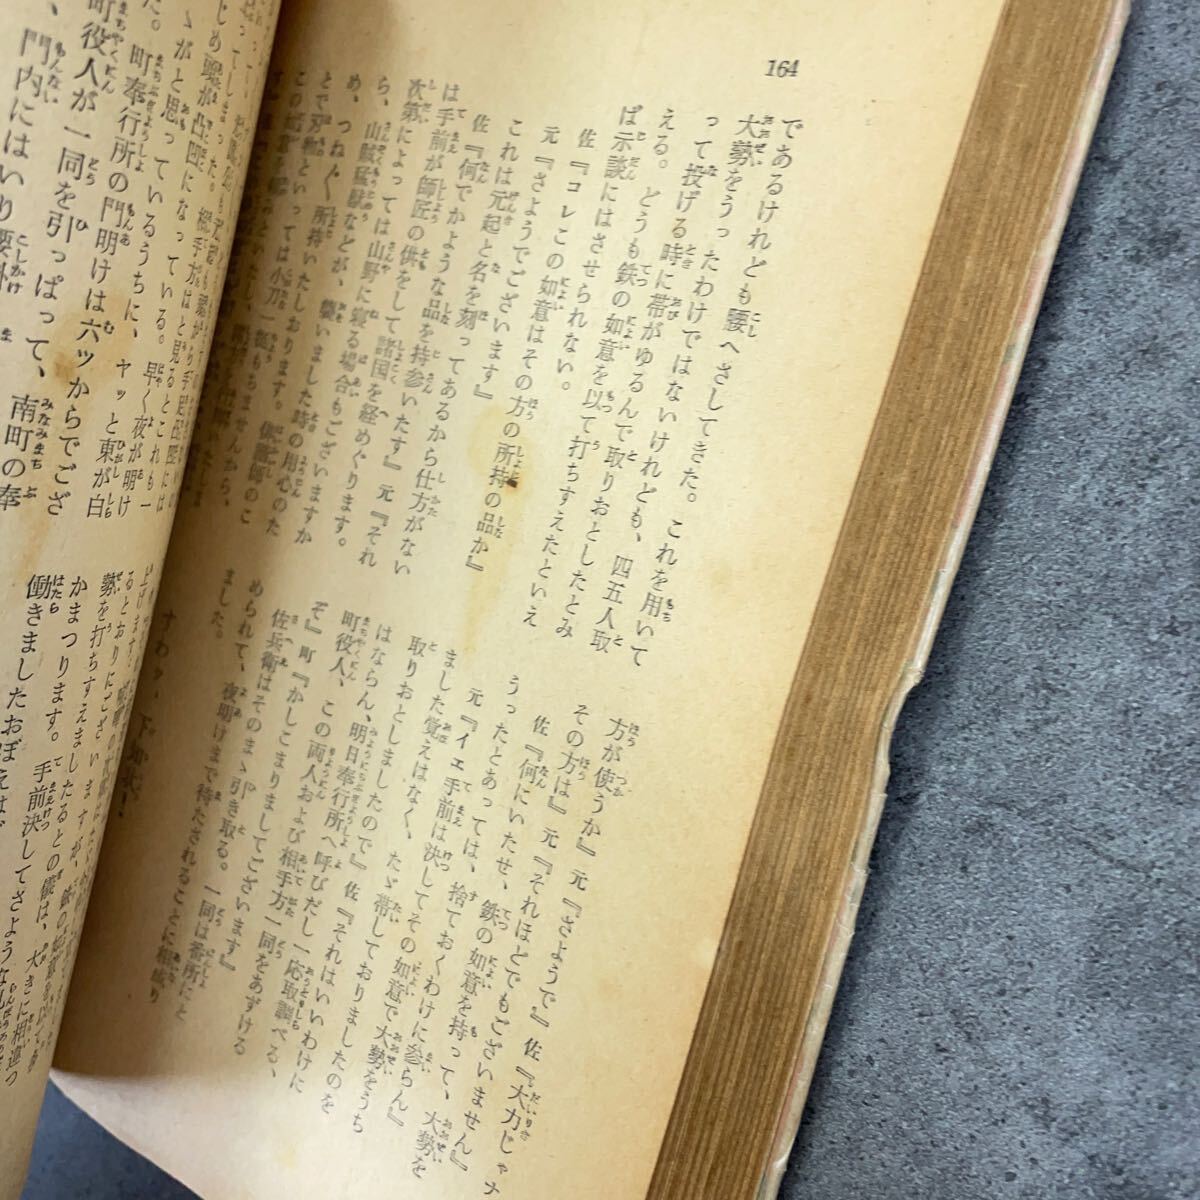 164
であるけれども腰へさしてきた。これを用いて
大勢をうったわけではないけれども、四五人取
って投げる時に帯がゆるんで取りおとしたとみ
える。どうも鉄の如意を以て打ちすえたといえ
ば示談にはさせられない。
佐『コレこの如意はその方の所持の品か』
元『さようでございます』
これは元起と名を刻ってあるから仕方がない
佐『何でかような品を持参いたす』元『それ
は手前が師匠の供をして諸国を経めぐります。
次第によっては山野に寝る場合もございますか
ら、山賊猛獣などが、襲いました時の用心のた
め、つね〴〵所持いたしおります。併し師のこ
とで刃物といっては小刀一挺もちませんから、
方が使うか』元『さようで』佐『大力じゃナ
その方は』元『それほどでもございません』
佐『何にいたせ、鉄の如意を持って、大勢を
うったとあっては、捨ておくわけに参らん』
元『イエ手前は決してその如意で大勢をうち
ました覚えはなく、たゞ帯しておりましたのを
取りおとしましたので』佐『それはいいわけに
はならん、明日奉行所へ呼びだし一応取調べる、
町役人、この両人および相手方一同をあずける
ぞ』町『かしこまりましてございます』
佐兵衛はそのまゝ引き取る。一同は番所にと
められて、夜明けまで待たされることに相成り
ました。
じめ頭が凸凹になっている。早く夜が明け
ゝがと思っているうちに、ヤッと東が白
た。町奉行所の門明けは六ツからでござ
町役人が一同を引っぱって、南町の奉
、門内にはいり腰掛
勢を打ちすえましたるとの儀は、大きに相違つ
かまつります。手前決してさような
働きましたおぼえは